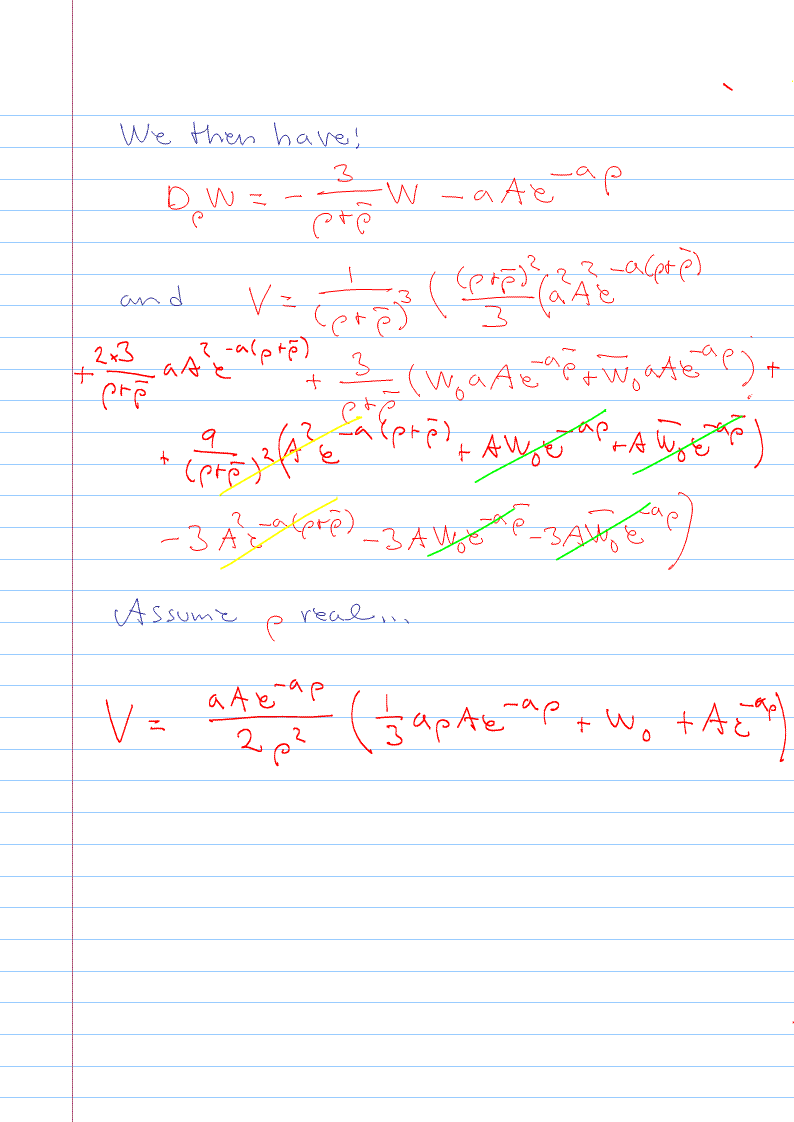 We then have!
D_ρ W = - 3/(ρ+ρ̄) W - aAe^{-aρ}
and V = 1/(ρ+ρ̄)^3 ( (ρ+ρ̄)^2/3 (a^2A^2e^{-a(ρ+ρ̄)}
+ 2×3/(ρ+ρ̄) aA^2e^{-a(ρ+ρ̄)} + 3/(ρ+ρ̄) (W_0 aAe^{-aρ̄} + W̄_0 aAe^{-aρ}) +
+ 9/(ρ+ρ̄)^2 (A^2e^{-a(ρ+ρ̄)} + AW_0e^{-aρ} + AW̄_0e^{-aρ̄})
-3A^2e^{-a(ρ+ρ̄)} - 3AW_0e^{-aρ̄} - 3AW̄_0e^{-aρ})
Assume ρ real...
V = aAe^{-aρ}/2ρ^2 (1/3 aρAe^{-aρ} + W_0 + Ae^{-aρ})